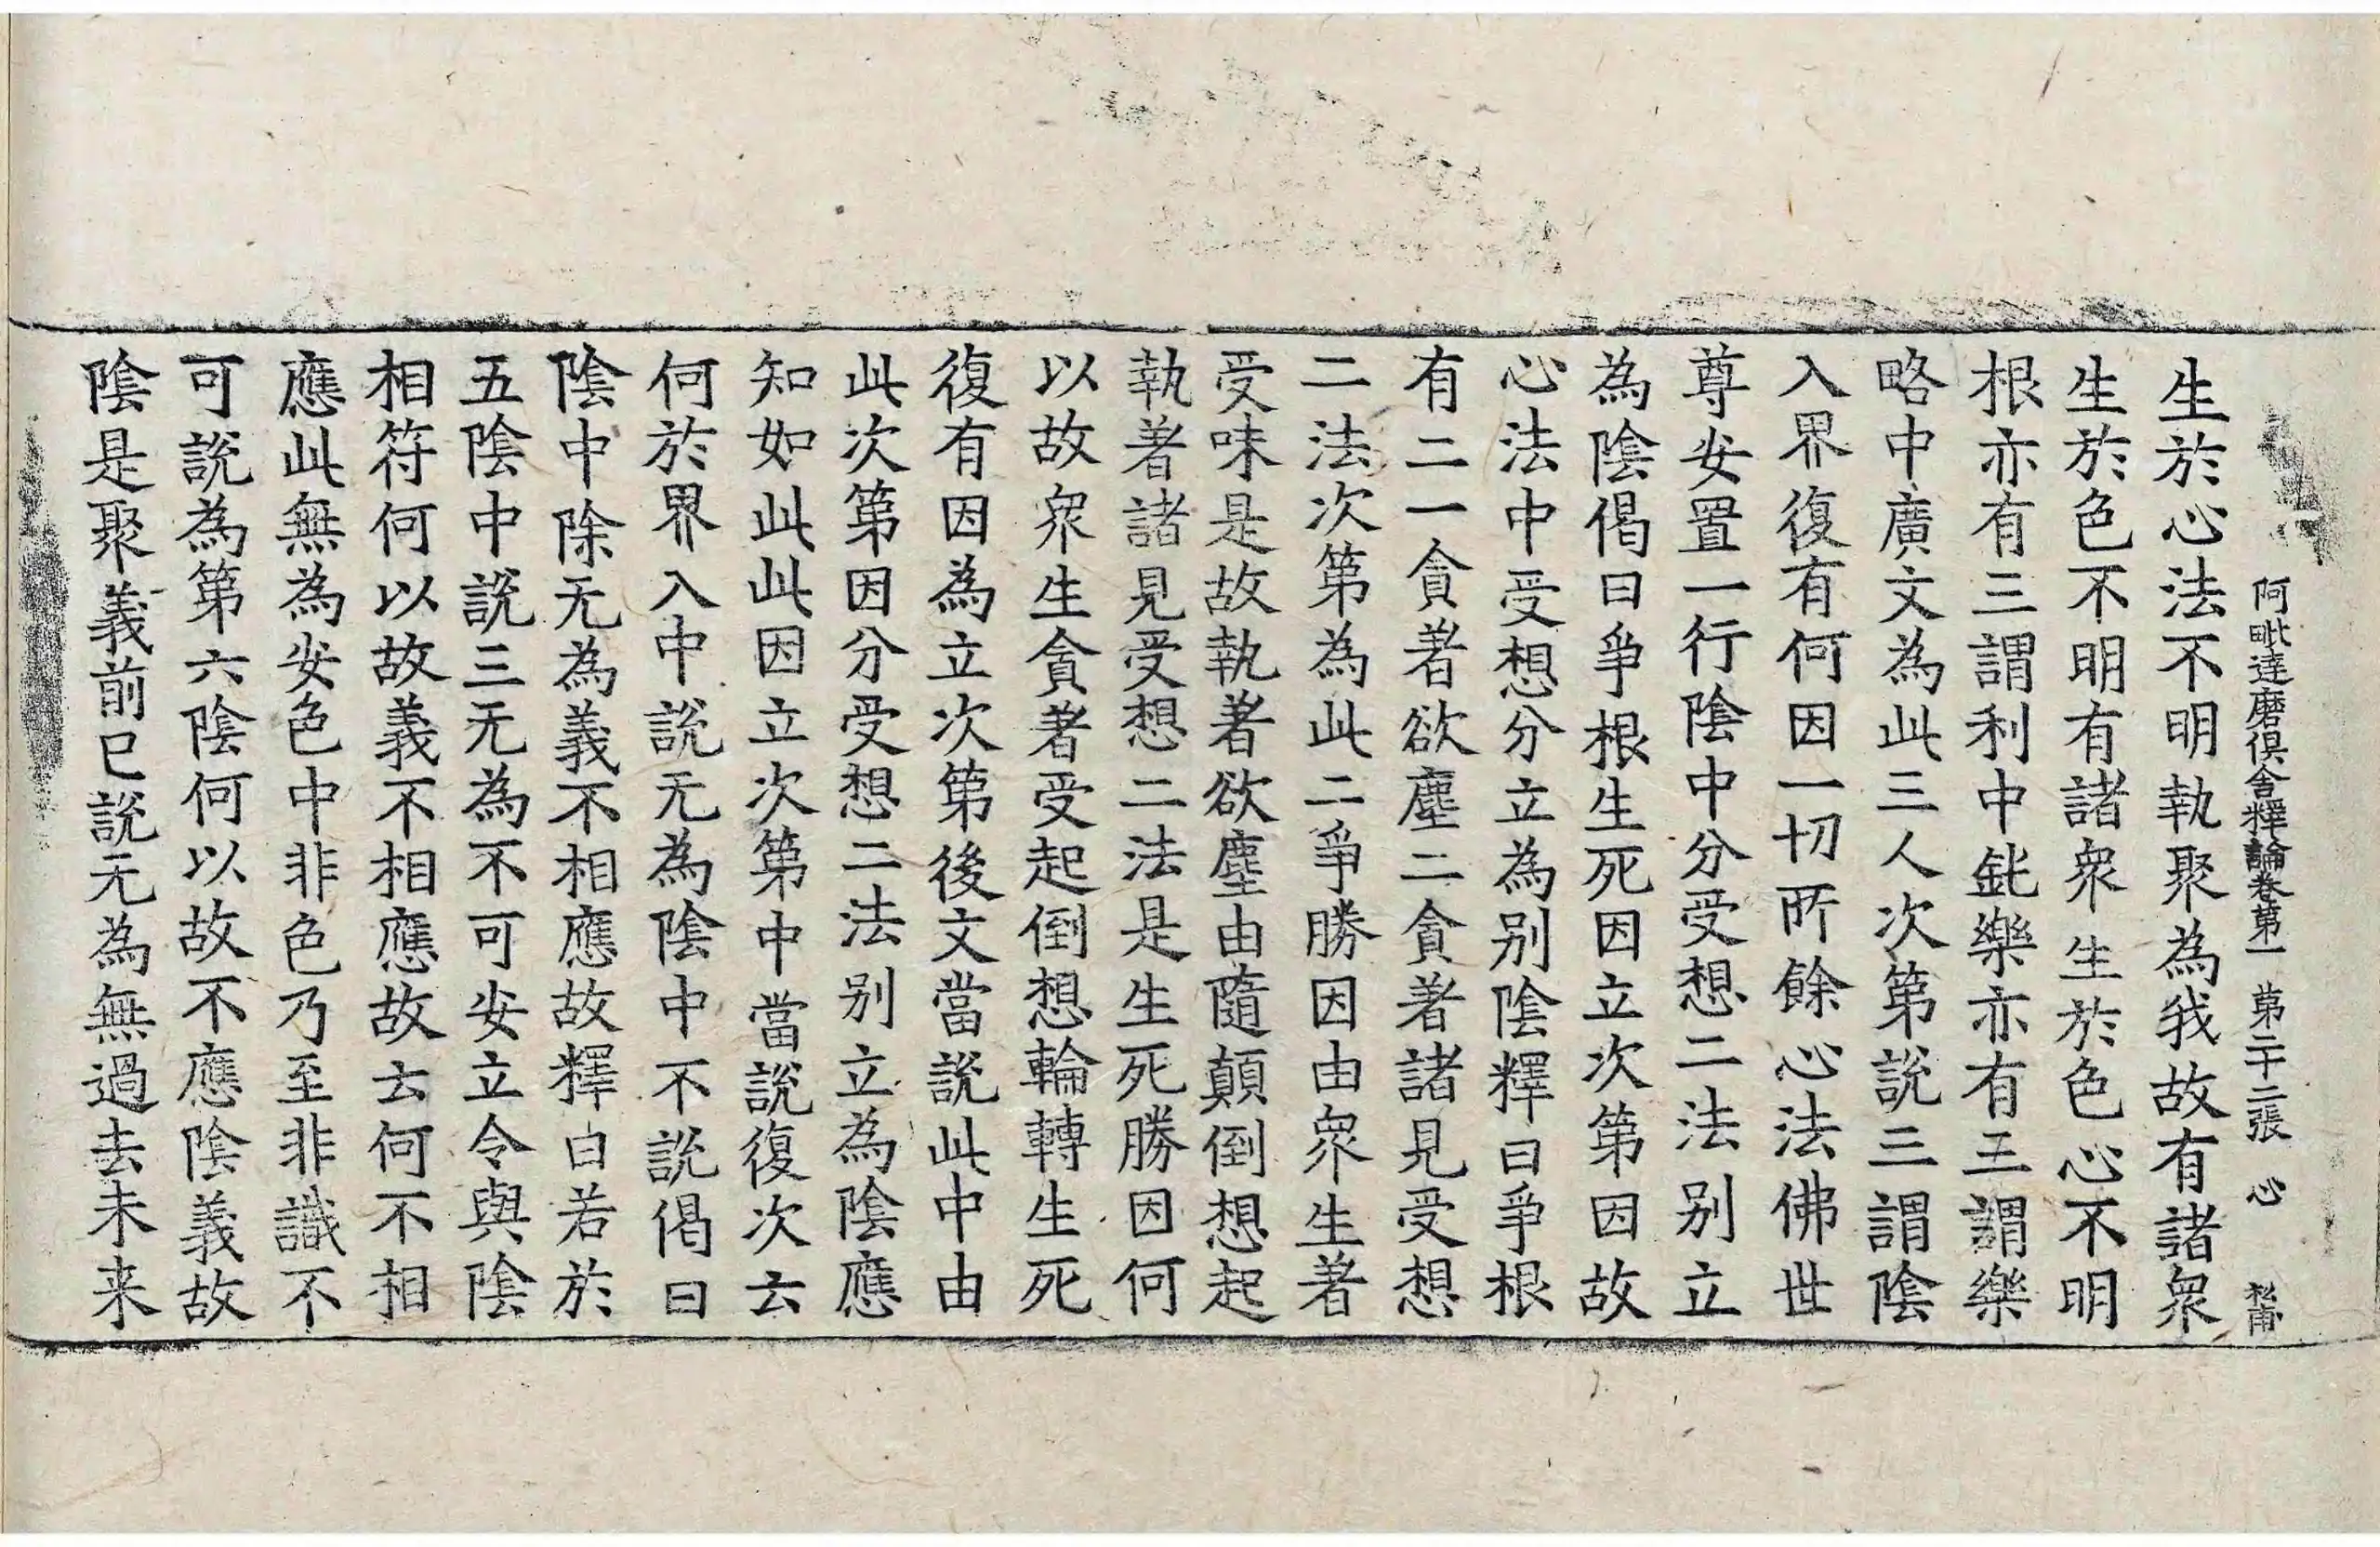 阿毗達磨俱舍釋論卷第一 第二十二張 心 松甫
生於心法不明執聚為我故有諸衆
生於色不明有諸衆生於色心不明
根亦有三謂利中鈍樂亦有三謂樂
略中廣文為此三人次第說三謂陰
入界復有何因一切所餘心法佛世
尊安置一行陰中分受想二法別立
為陰偈曰爭根生死因立次第因故
心法中受想分立為別陰釋曰爭根
有二一貪著欲塵二貪著諸見受想
二法次第為此二爭勝因由衆生著
受味是故執著欲塵由隨顛倒想起
執著諸見受想二法是生死勝因何
以故衆生貪著受起倒想輪轉生死
復有因為立次第後文當說此中由
此次第因分受想二法別立為陰應
知如此此因立次第中當說復次云
何於界入中說无為陰中不說偈曰
陰中除无為義不相應故釋曰若於
五陰中說三无為不可安立令與陰
相符何以故義不相應故云何不相
應此無為安色中非色乃至非識不
可說為第六陰何以故不應陰義故
陰是聚義前已說无為無過去未来